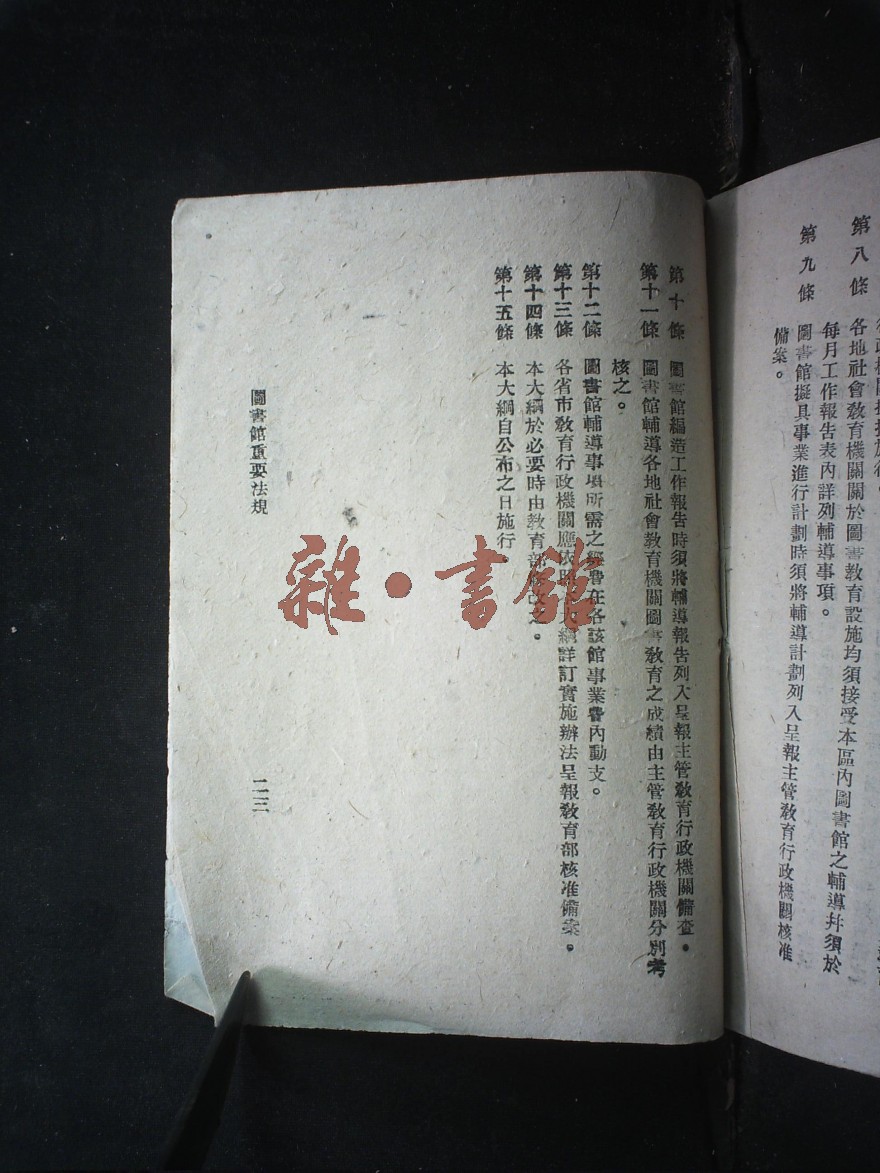 各地社會教育機關關於圖書教育設施均須接受本區內圖書館之輔導幷須於
第八條
每月工作報告表內詳列輔導事項。
第九條
圖書館擬具事業進行計劃時須將輔導計劃列入呈報主管教育行政機關核准
備案。
第十條 圖書館編造工作報告時須將輔導報告列入呈報主管教育行政機關備查。
第十一條 圖書館輔導各地社會教育機關圖書教育之成績由主管教育行政機關分別考
核之。
第十二條 圖書館輔導事項所需之經費在各該館事業費內動支。
第十三條 各省市教育行政機關應依照大綱詳訂實施辦法呈報教育部核准備案。
第十四條 本大綱於必要時由教育部修改之。
第十五條 本大綱自公布之日施行。
圖書館重要法規
二三
雜·書館